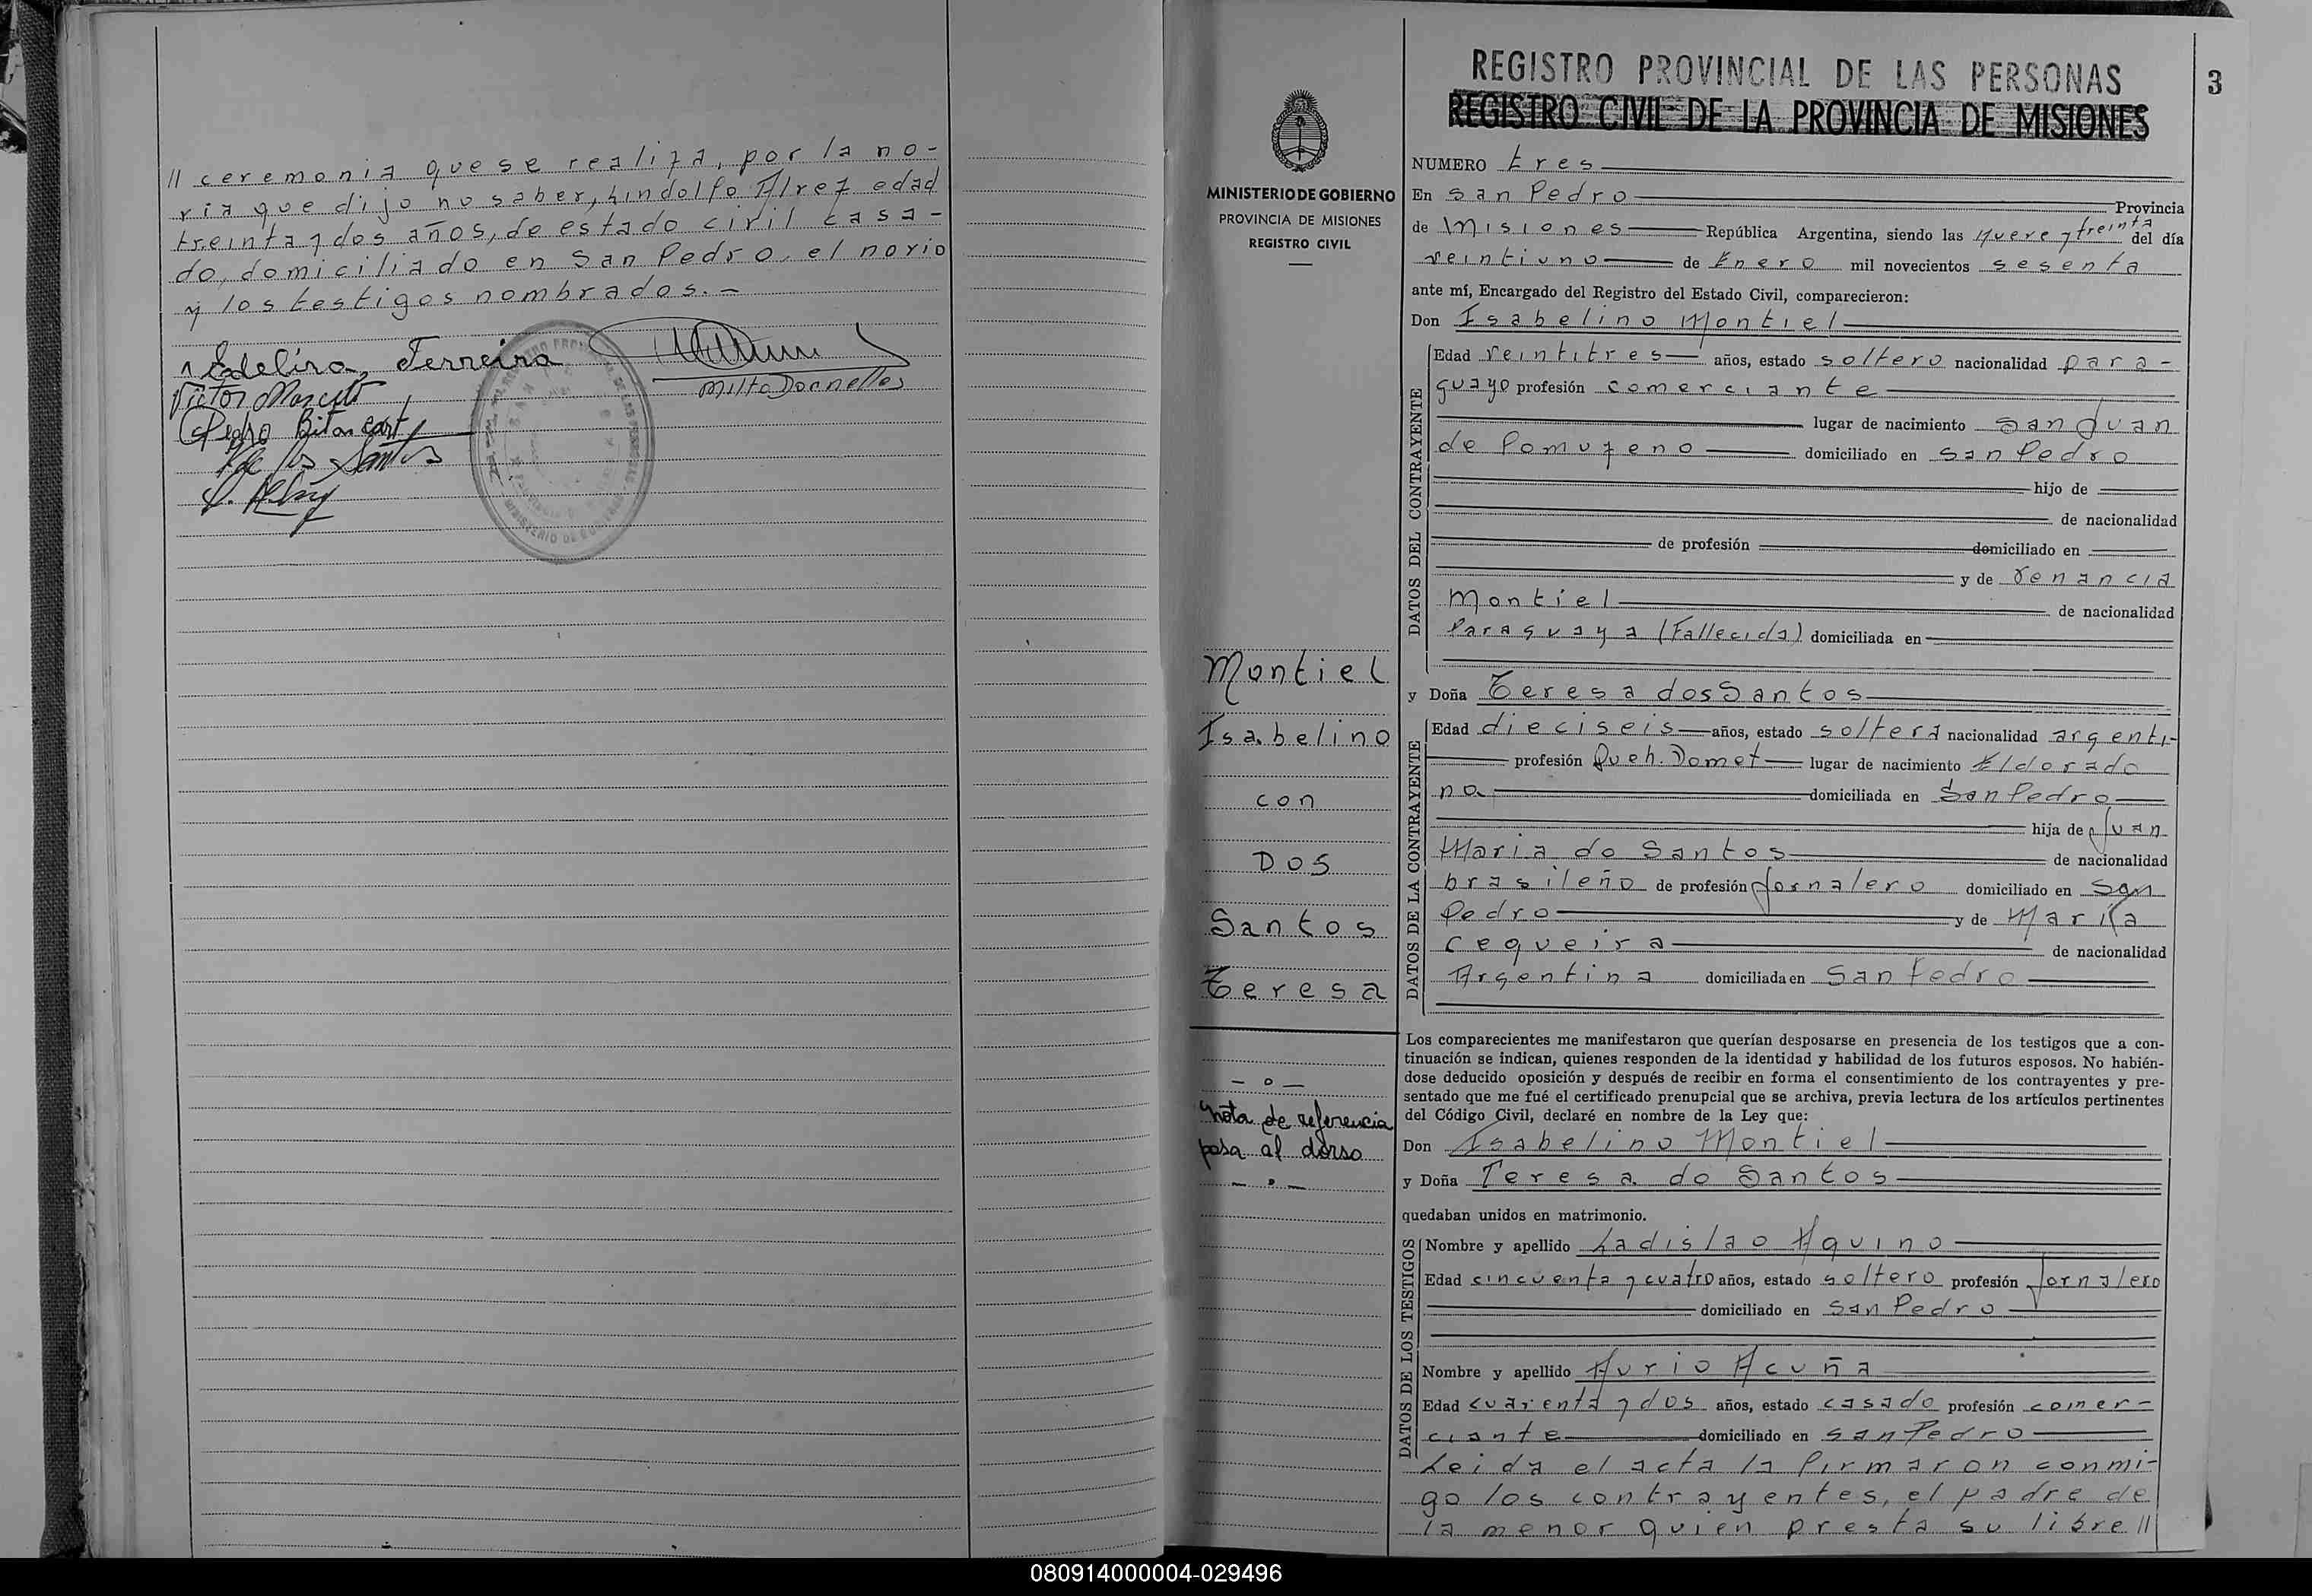 // ceremonia que se realiza, por la no-
via que dijo no saber, Lindolfo Alvez edad
treinta y dos años, de estado civil casa-
do, domiciliado en San Pedro, el novio
y los testigos nombrados.-
Edelira, Ferreira
Milto Dornelles
Victor
Pedro
de los Santos
3
REGISTRO PROVINCIAL DE LAS PERSONAS
REGISTRO CIVIL DE LA PROVINCIA DE MISIONES
MINISTERIO DE GOBIERNO
PROVINCIA DE MISIONES
REGISTRO CIVIL
Montiel
Isabelino
con
DOS
Santos
Teresa
- o -
Nota de referencia
pasa al dorso
- o -
NUMERO tres
En San Pedro Provincia
de Misiones República Argentina, siendo las nueve y treinta del día
veintiuno de Enero mil novecientos sesenta
ante mí, Encargado del Registro del Estado Civil, comparecieron:
Don Isabelino Montiel
DATOS DEL CONTRAYENTE
Edad veintitres años, estado soltero nacionalidad para-
guayo profesión comerciante
lugar de nacimiento San Juan
de Pomuzeno domiciliado en San Pedro
hijo de
de nacionalidad
de profesión domiciliado en
y de Venancia
Montiel de nacionalidad
Paraguaya (Fallecida) domiciliada en
y Doña Teresa dos Santos
DATOS DE LA CONTRAYENTE
Edad dieciseis años, estado soltera nacionalidad argenti-
profesión Queh. Domet lugar de nacimiento Eldorado
na domiciliada en San Pedro
hija de Juan
Maria do Santos de nacionalidad
brasileño de profesión Jornalero domiciliado en San
Pedro y de Maria
Cequeira de nacionalidad
Argentina domiciliada en San Pedro
Los comparecientes me manifestaron que querían desposarse en presencia de los testigos que a con-
tinuación se indican, quienes responden de la identidad y habilidad de los futuros esposos. No habién-
dose deducido oposición y después de recibir en forma el consentimiento de los contrayentes y pre-
sentado que me fué el certificado prenupcial que se archiva, previa lectura de los artículos pertinentes
del Código Civil, declaré en nombre de la Ley que:
Don Isabelino Montiel
y Doña Teresa do Santos
quedaban unidos en matrimonio.
DATOS DE LOS TESTIGOS
Nombre y apellido Ladislao Aquino
Edad cincuenta y cuatro años, estado soltero profesión Jornalero
domiciliado en San Pedro
Nombre y apellido Aurio Acuña
Edad cuarenta y dos años, estado casado profesión comer-
ciante domiciliado en San Pedro
Leida el acta la firmaron conmi-
go los contrayentes, el padre de
la menor quien presta su libre //
080914000004-029496